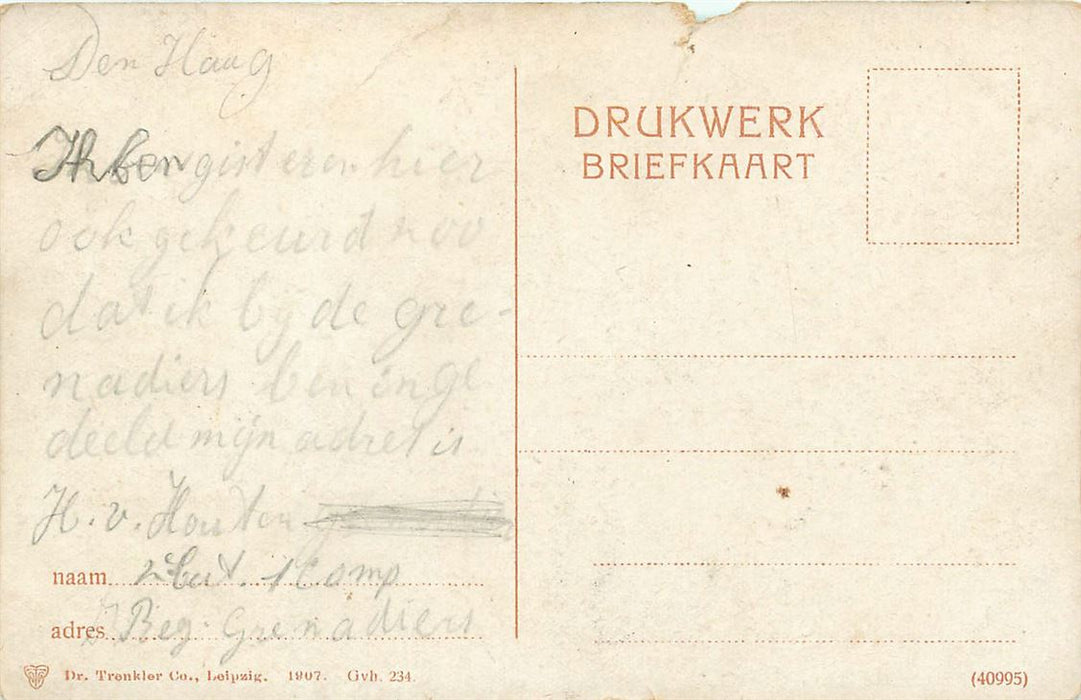 Den Haag
Ik ben gisteren hier
ook gekeurd zoo
dat ik bij de gre-
nadiers ben inge
deeld mijn adres is
H. v. Houten
naam 2e bat. 1 Comp
adres Reg. Grenadiers
DRUKWERK
BRIEFKAART
Dr. Trenkler Co., Leipzig. 1907. Gvh. 234.
(40995)